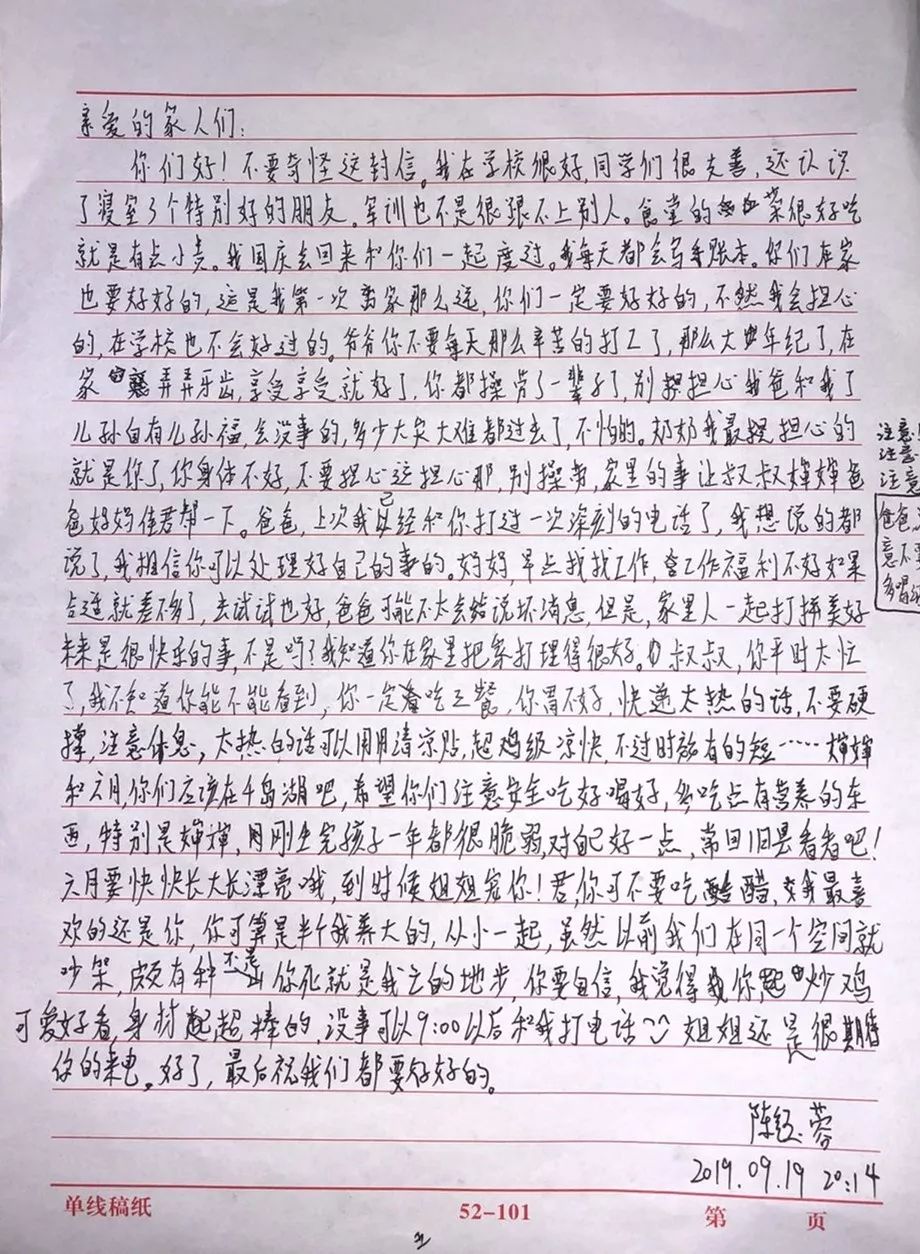 亲爱的家人们:
你们好!不要奇怪这封信。我在学校很好,同学们很友善,还认识
了寝室3个特别好的朋友。军训也不是很跟不上别人。食堂的菜很好吃
就是有点小贵。我国庆会回来和你们一起度过。我每天都会写手账本。你们在家
也要好好的,这是我第一次离家那么远,你们一定要好好的,不然我会担心
的,在学校也不会好过的。爷爷你不要每天那么辛苦的打工了,那么大年纪了,在
家弄弄牙齿,享受享受就好了,你都操劳了一辈子了,别担心我爸和我了
儿孙自有儿孙福,会没事的,多少大灾大难都过去了,不怕的。奶奶我最担心的
就是你了,你身体不好,不要担心这担心那,别操劳,家里的事让叔叔婶婶爸
爸妈妈佳君帮一下。爸爸,上次我已经和你打过一次深刻的电话了,我想说的都
说了,我相信你可以处理好自己的事的。妈妈,早点找找工作,工作福利不好如果
合适就差不多了,去试试也好,爸爸可能不太会给说坏消息,但是,家里人一起打拼美好
未来是很快乐的事,不是吗?我知道你在家里把家打理得很好。叔叔,你平时太忙
了,我不知道你能不能看到,你一定要吃三餐,你胃不好,快递太热的话,不要硬
撑,注意休息,太热的话可以用用清凉贴,超鸡级凉快,不过时效有的短……婶婶
和六月,你们应该在千岛湖吧,希望你们注意安全吃好喝好,多吃点有营养的东
西,特别是婶婶,刚生完孩子一年都很脆弱,对自己好一点,常回旧县看看吧!
六月要快快长大长漂亮哦,到时候姐姐宠你!君,你可不要吃醋,我最喜
欢的还是你,你可算是半个我养大的,从小一起,虽然以前我们在同一个空间就
吵架,颇有种不是你死就是我亡的地步,你要自信,我觉得你超炒鸡
可爱好看,身材超棒的,没事可以9:00以后和我打电话 姐姐还是很期待
你的来电。好了,最后祝我们都要好好的。
注意!
注意
注意
爸爸
意不要
多喝
陈 蓉
2019.09.19 20:14
单线稿纸 52-101 第 页